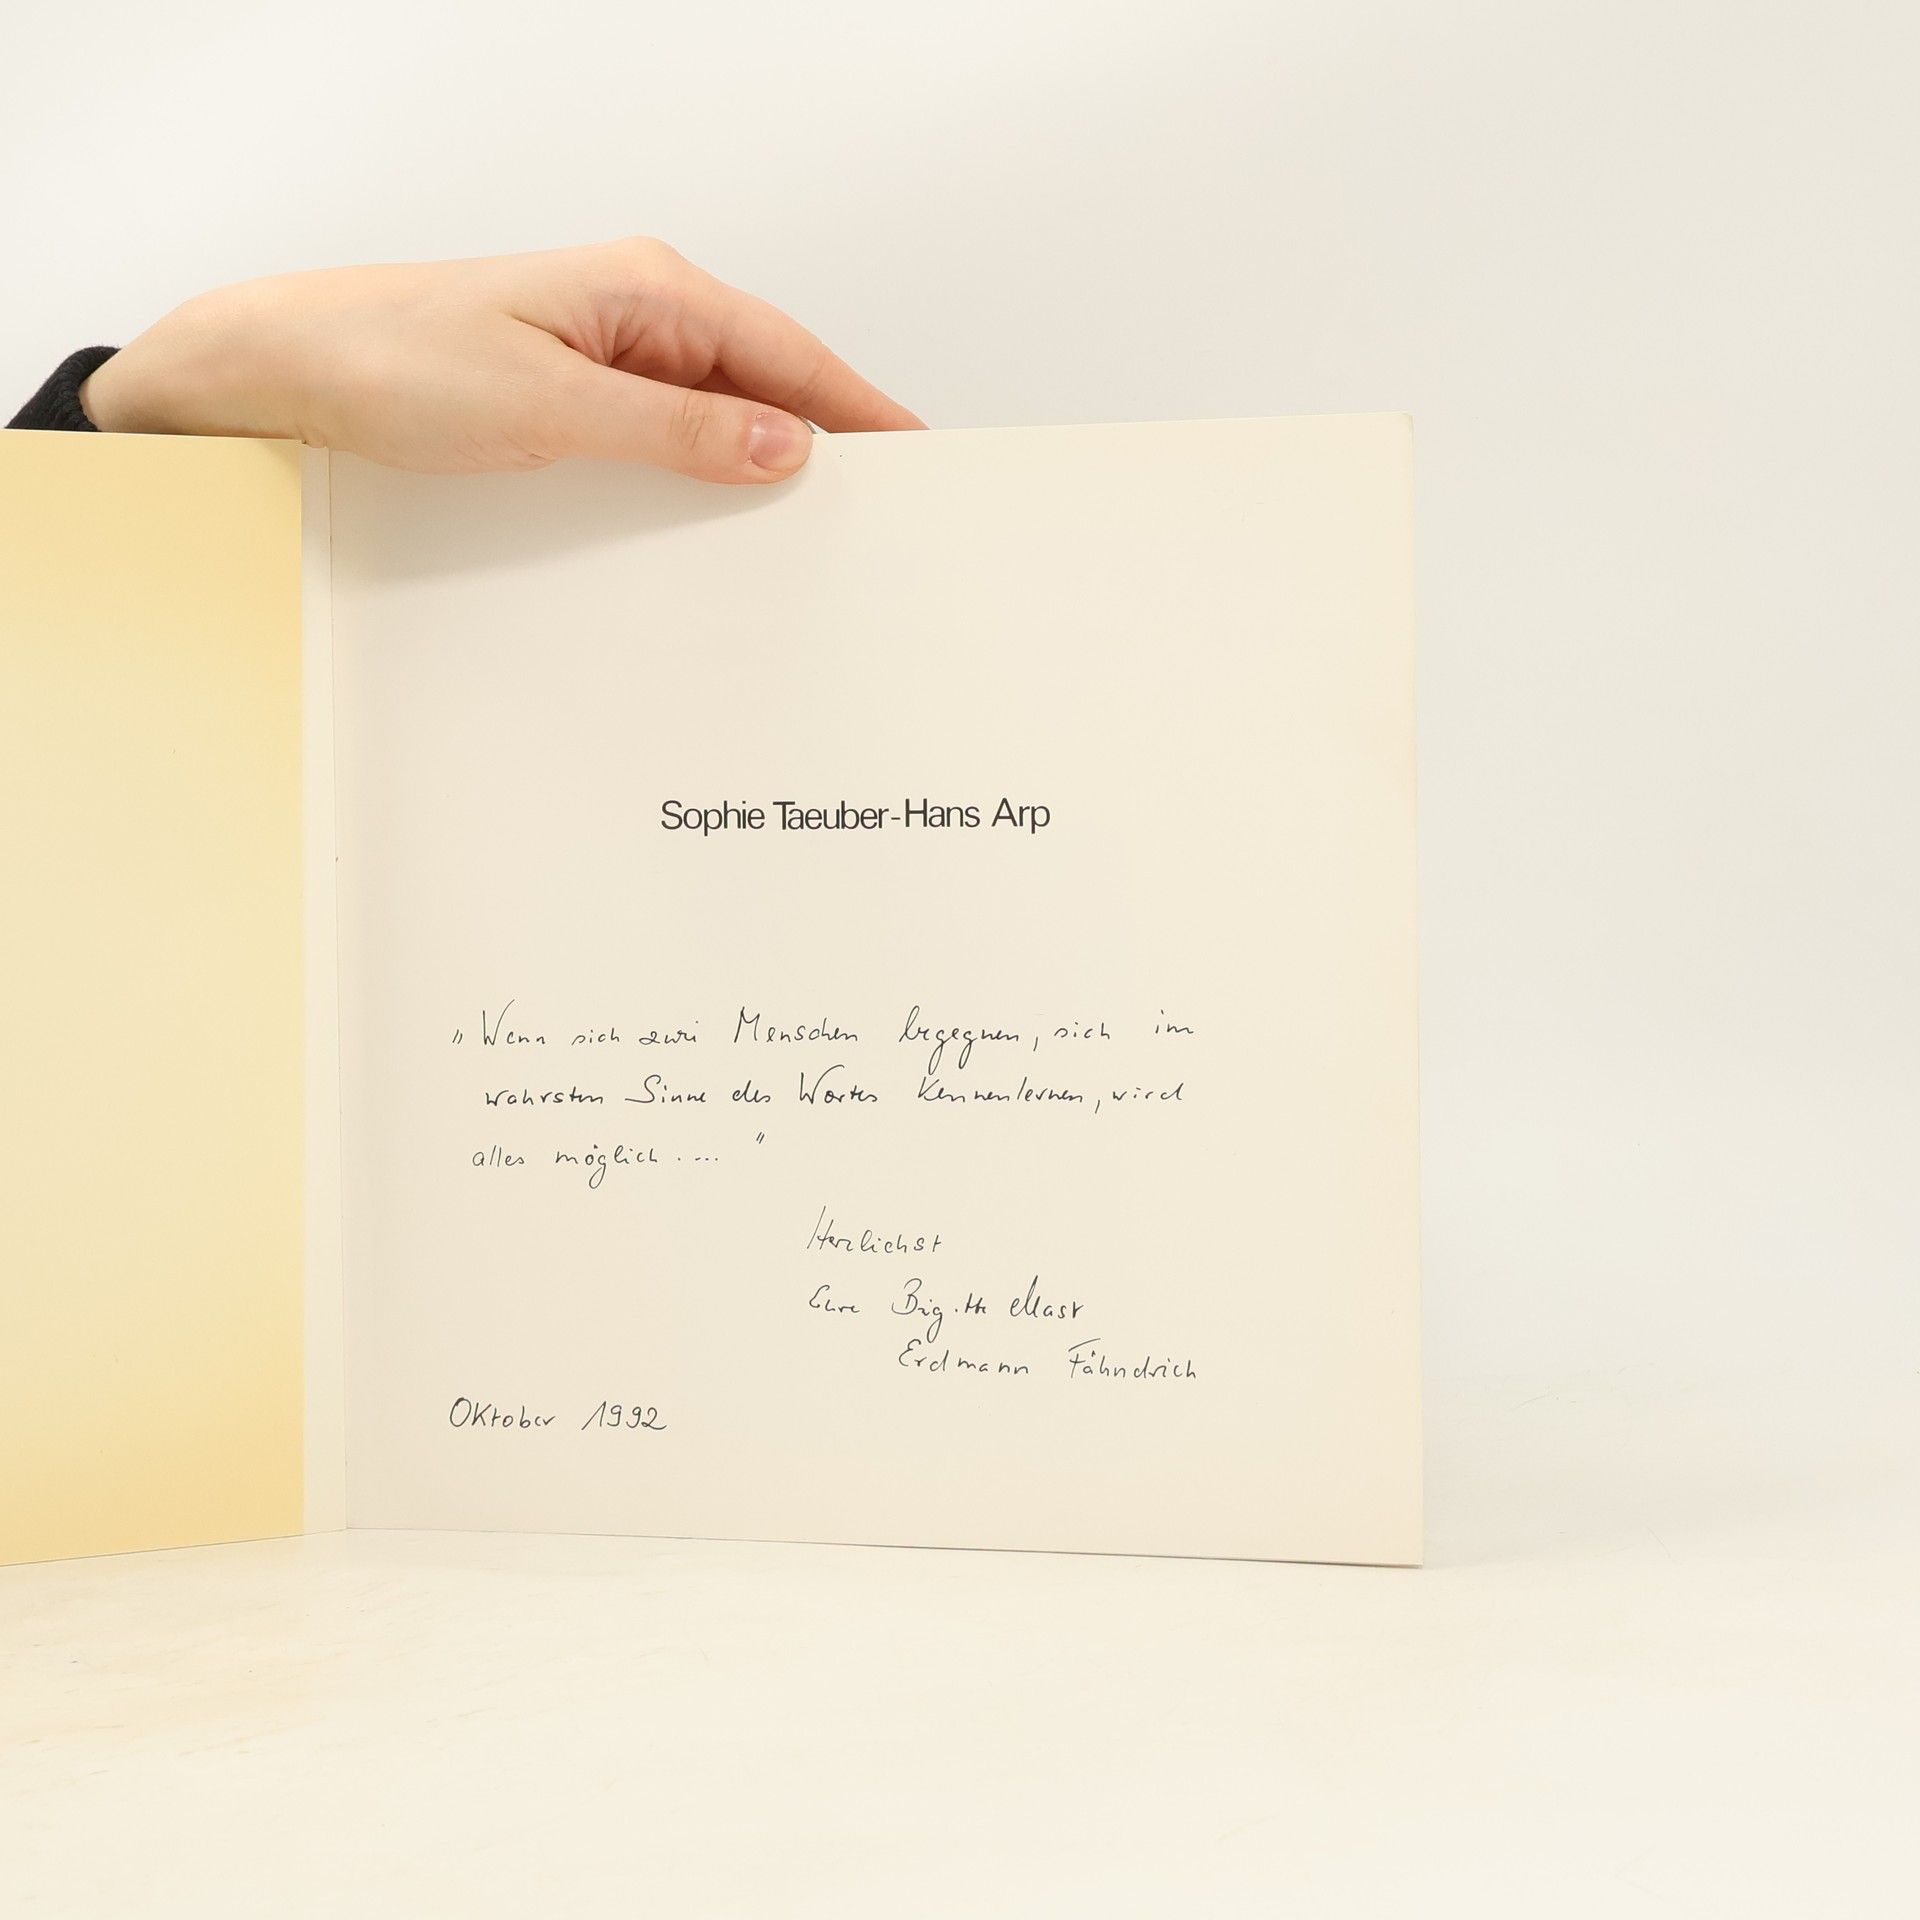 Sophie Taeuber-Hans Arp
„Wenn sich zwei Menschen begegnen, sich im
wahrsten Sinne des Wortes Kennenlernen, wird
alles möglich ...."
Herzlichst
Eure Brigitte Mast
Erdmann Fähndrich
Oktober 1992